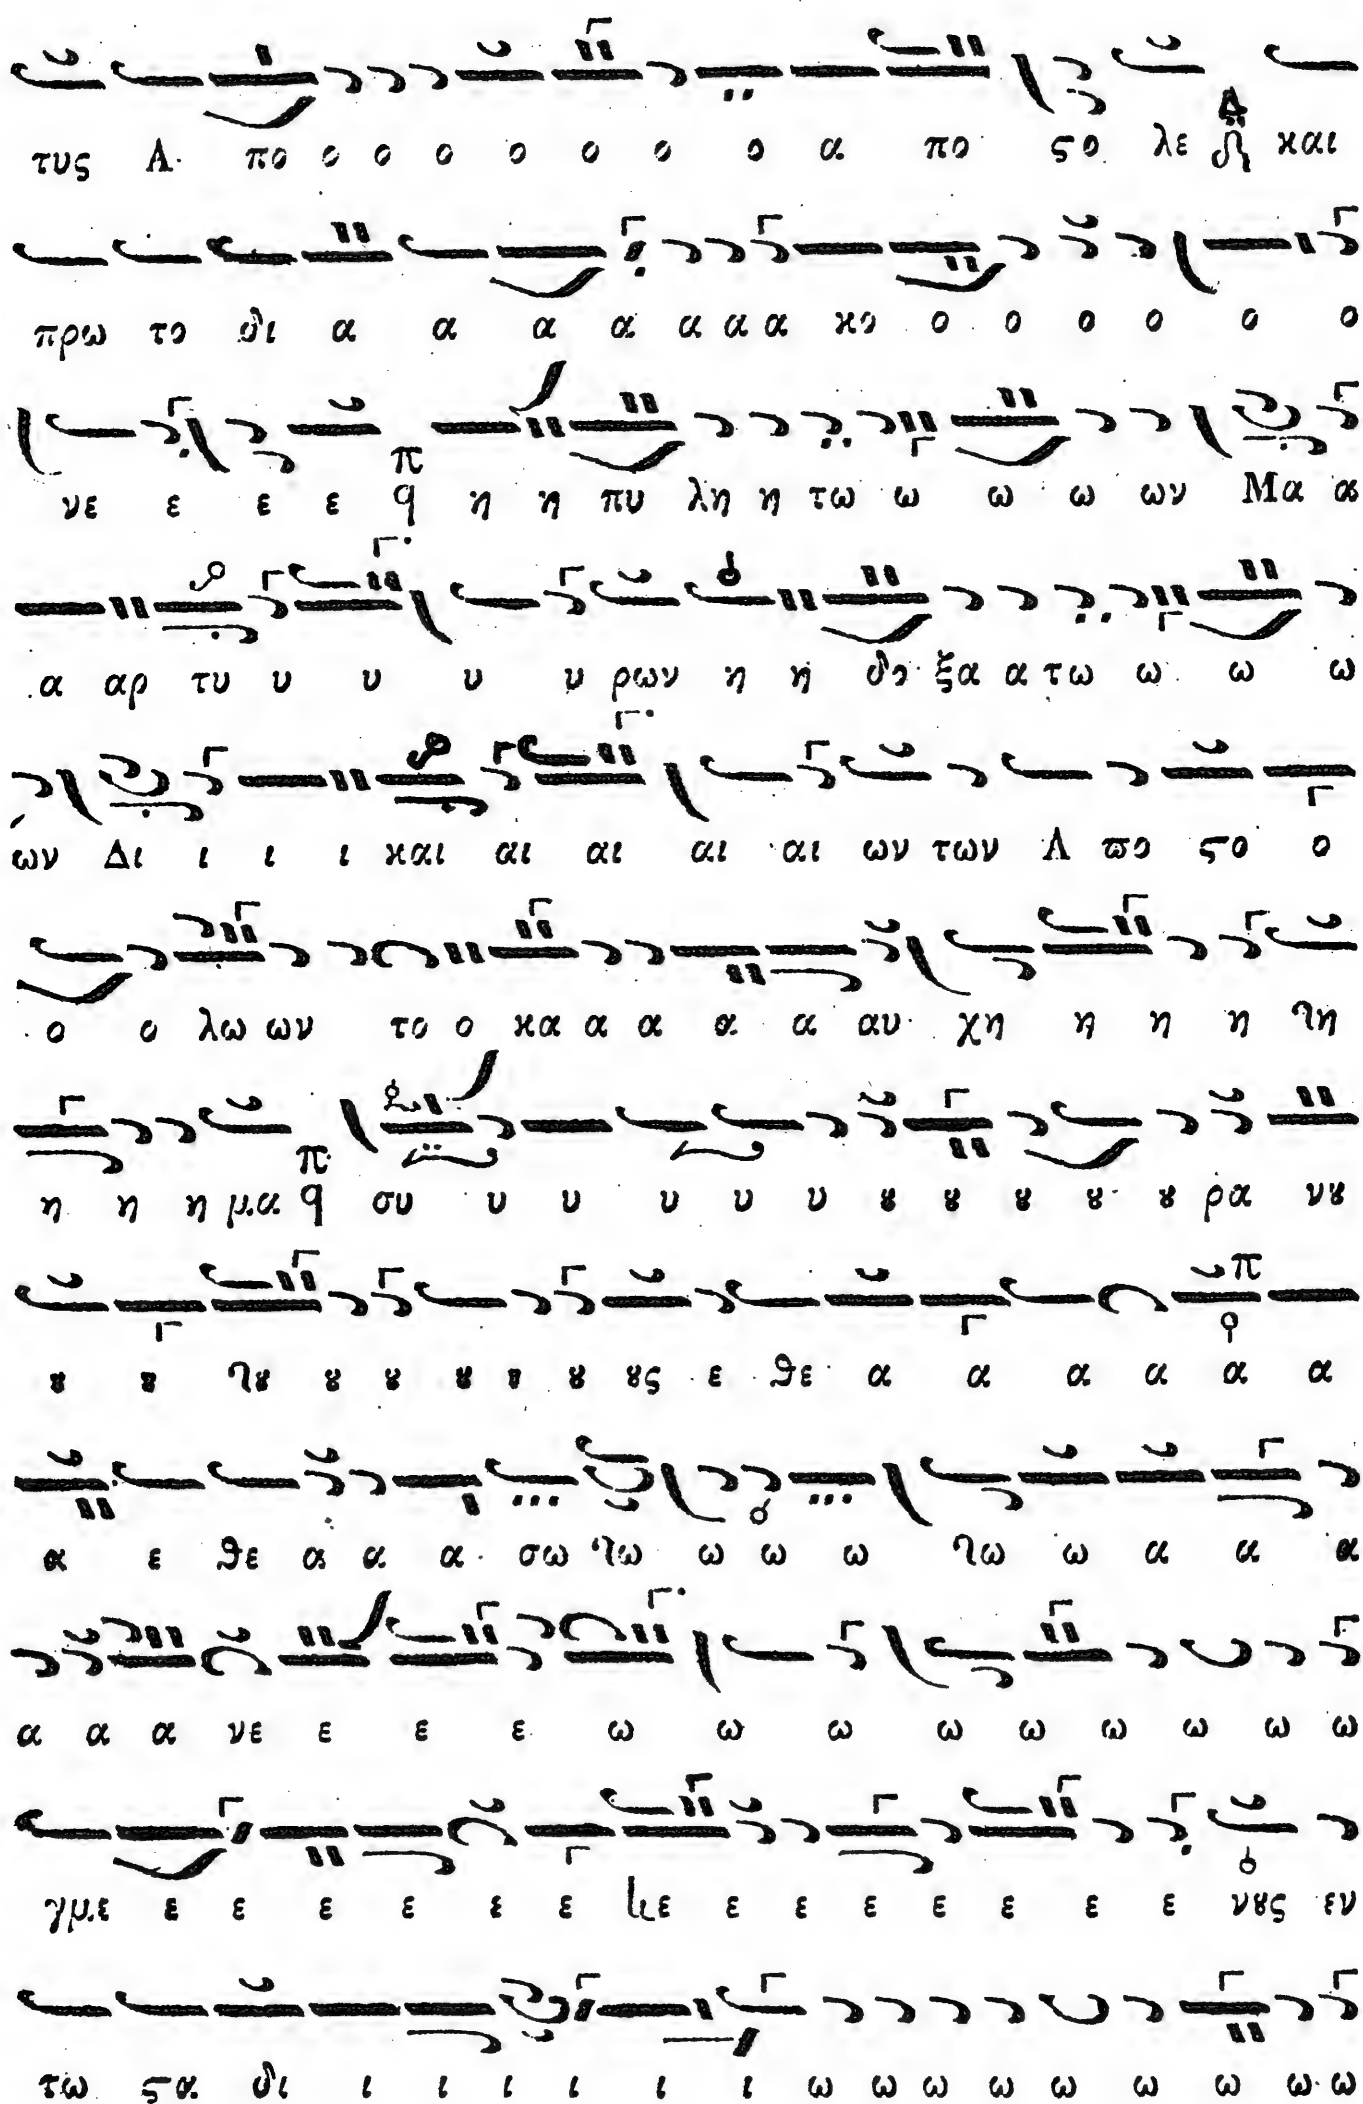 τυς Α πο ο ο ο ο ο ο ο α πο ϛο λε και
πρω το δι α α α α α α α κο ο ο ο ο ο ο
νε ε ε ε η η πυ λη η τω ω ω ω ων Μα α
α αρ τυ υ υ υ υ ρων η η δο ξα α τω ω ω ω
ων Δι ι ι ι και αι αι αι αι ων των Α ϖο ϛο ο
ο ο λω ων το ο κα α α α α αυ χη η η η τη
η η η μα συ υ υ υ υ υ ȣ ȣ ȣ ȣ ȣ ρα νȣ
ȣ ȣ τȣ ȣ ȣ ȣ ȣ ȣ ȣς ε θε α α α α α α
α ε θε α α α σω τω ω ω ω τω ω α α α
α α α νε ε ε ε ω ω ω ω ω ω ω ω ω
γμε ε ε ε ε ε ε ε ε ε ε ε ε ε νȣς εν
τω ϛα δι ι ι ι ι ι ι ω ω ω ω ω ω ω ω ω